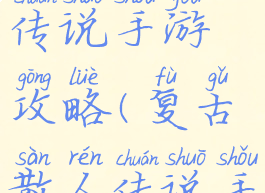 chuán shuō shǒu yóu
传说手游
gōng lüè fù gǔ
攻略(复古
sàn rén chuán shuō shǒu
散人传说手